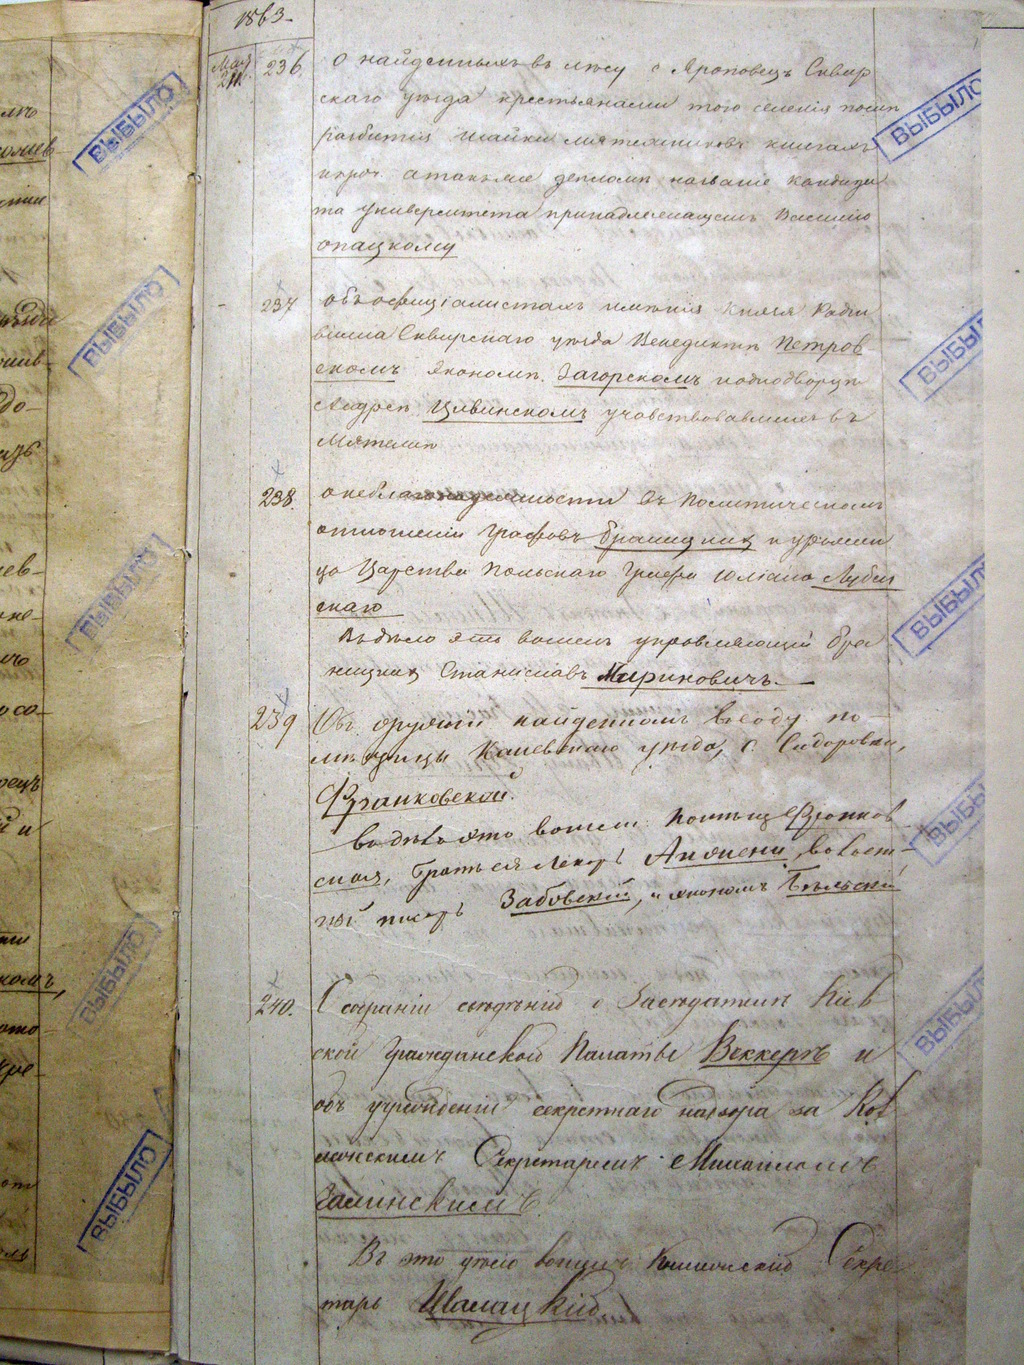 1863.
Мая 24. 236. о найденныхъ въ лѣсу с. Яроповецъ Сквир
скаго уѣзда крестьянами того селенія послѣ
разбитія шайки мятежниковъ книгахъ
и проч. а также дипломѣ на званіе кандида
та университета принадлежащемъ Василію
Опацкому
237 объ оффиціалистахъ имѣнія Князя Радзи
вилла Сквирскаго уѣзда Венедиктѣ Петров
скомъ Экономѣ Загорскомъ и однодворцѣ
Андреѣ Цивинскомъ учавствовавшихъ въ
Мятежѣ
238. о неблагонадежности въ Политическомъ
отношеніи Графовъ Браницкихъ и урожен
ца Царства Польскаго Графа Юліана Лубен
скаго
Въ дѣло это вошелъ управляющій Бра
ницкихъ Станиславъ Мариновичъ.
239 Объ оружіи найденномъ въ саду по-
мѣщицы Каневскаго уѣзда, с. Сидоровки,
Франковской.
въ дѣло это вошли: Франков
ская, братья Лекарь волост-
ный писарь Забовскій, и экономъ Бѣльскій
240. О собраніи свѣдѣній о Засѣдателѣ Кіев
ской Гражданской Палаты Веккерѣ и
объ учрежденіи секретнаго надзора за Кол
лежскимъ Секретаремъ Михаиломъ
Галинскимъ
Въ это дѣло вошелъ Коллежскій Секре
тарь Шалацкій.
ВЫБЫЛО
ВЫБЫЛО
ВЫБЫЛО
ВЫБЫЛО
ВЫБЫЛО
ВЫБЫЛО
ВЫБЫЛО
ВЫБЫЛО
ВЫБЫЛО
ВЫБЫЛО